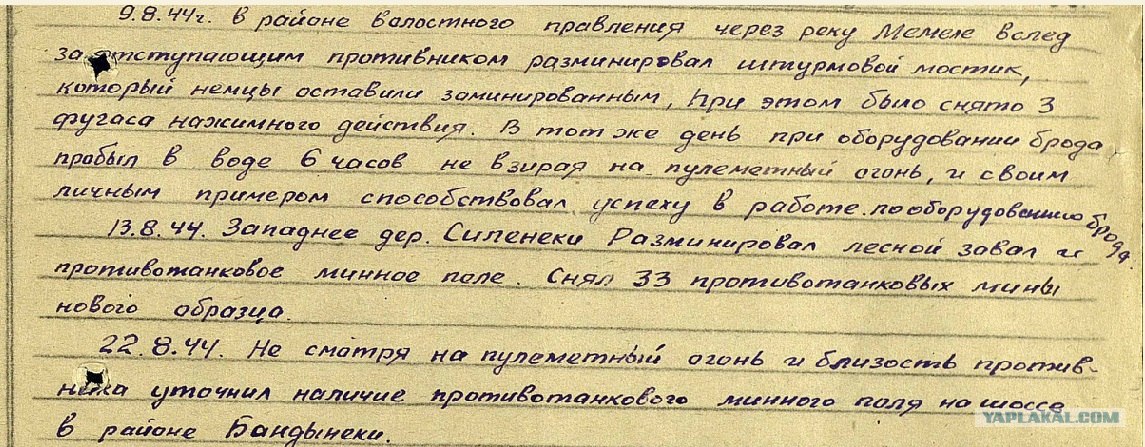 9.8.44г. в районе валостного правления через реку Мемеле вслед
за отступающим противником разминировал штурмовой мостик,
который немцы оставили заминированным, при этом было снято 3
фугаса нажимного действия. В тот же день при оборудовании брода
пробыл в воде 6 часов не взирая на пулеметный огонь, и своим
личным примером способствовал успеху в работе по оборудованию брода.
13.8.44. Западнее дер. Силенеки Разминировал лесной завал и
противотанковое минное поле. Снял 33 противотанковых мины
нового образца.
22.8.44. Не смотря на пулеметный огонь и близость против-
ника уточнил наличие противотанкового минного поля на шоссе
в районе Бандынеки.
YAPLAKAL.COM